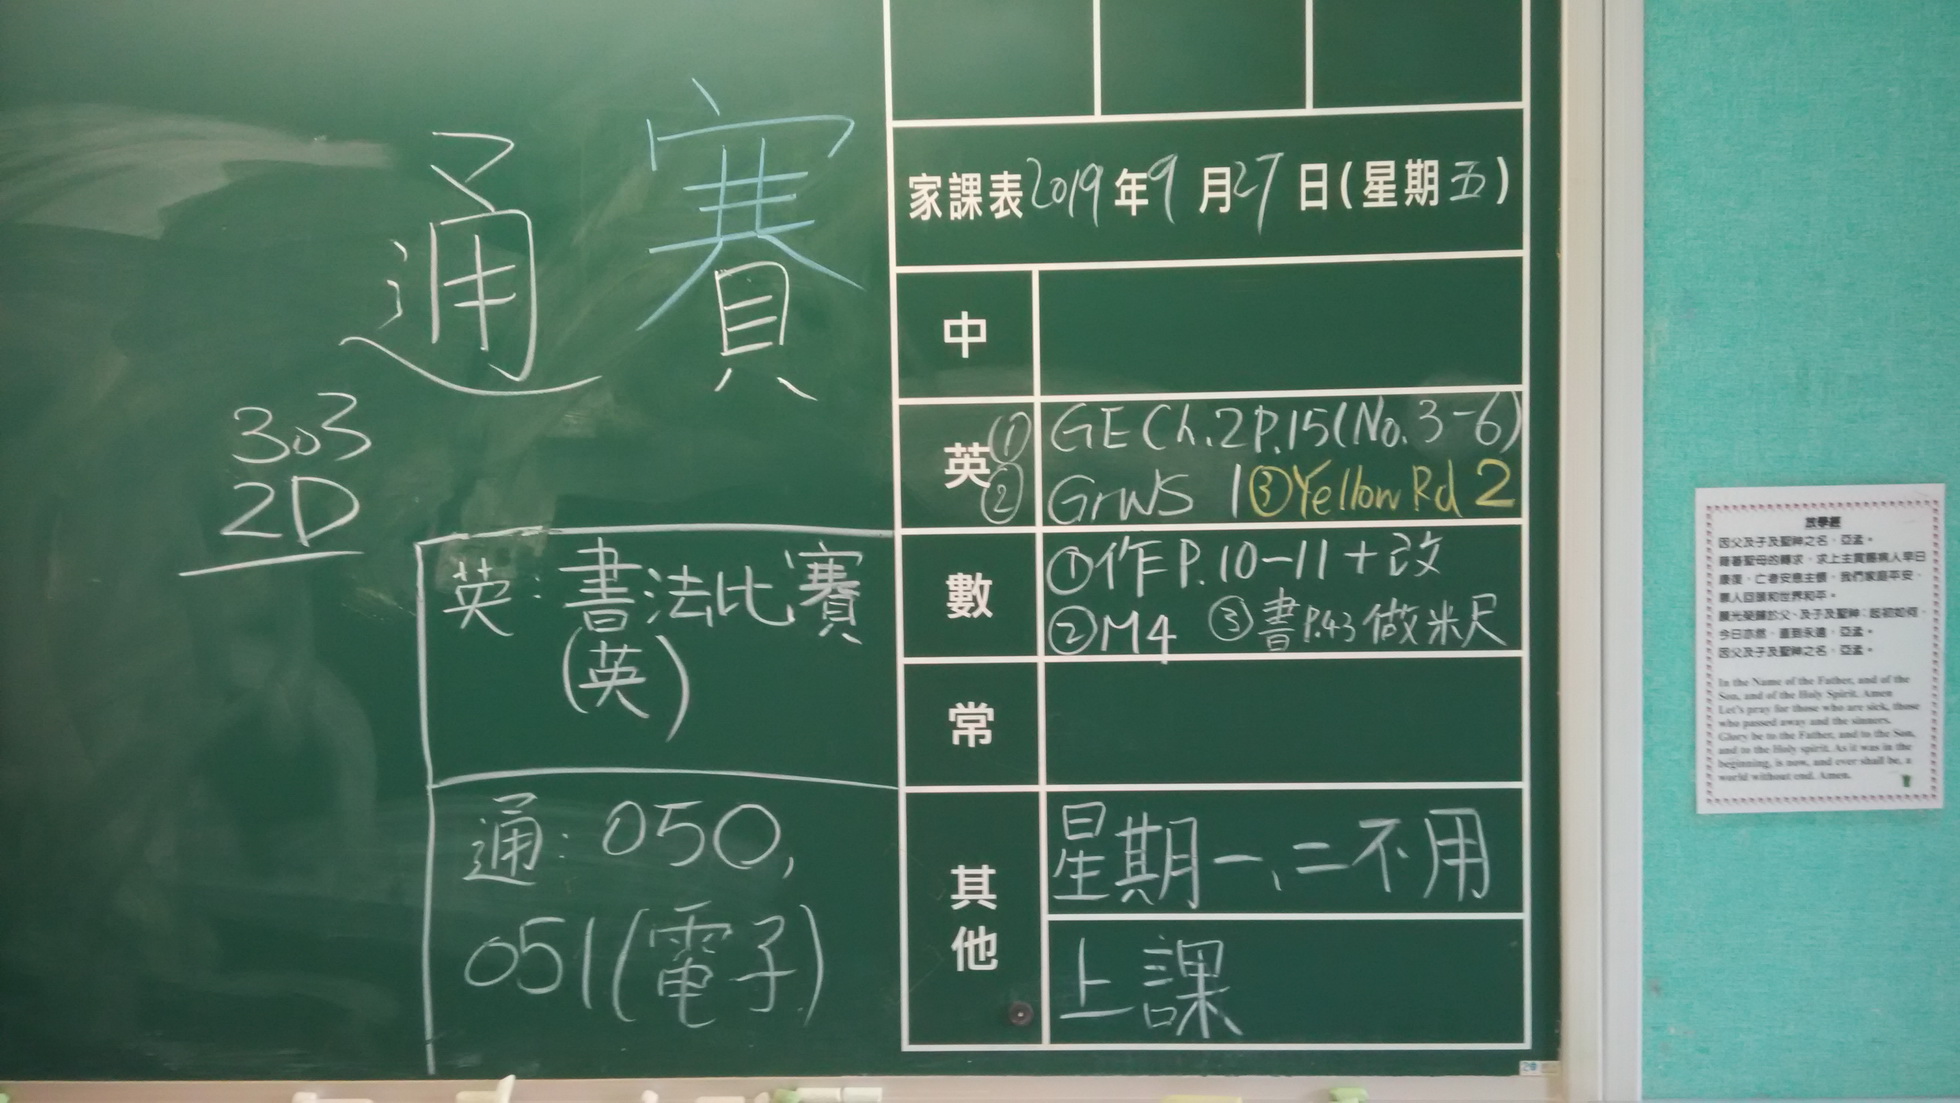 通 賽
303
2D
英：書法比賽
(英)
通：050,
051(電子)
家課表2019年9月27日(星期五)
中
英 ① GE Ch.2 P.15(No.3-6)
② GrWS 1 ③Yellow Rd 2
數 ①作P.10-11+改
②M4 ③書P.43做米尺
常
其他 星期一、二不用
上課
放學經
因父及子及聖神之名，亞孟。
藉著聖母的轉求，求上主賞賜病人早日
康復，亡者安息主懷，我們家庭平安，
罪人回頭和世界和平。
願光榮歸於父、及子及聖神；起初如何，
今日亦然，直到永遠，亞孟。
因父及子及聖神之名，亞孟。
In the Name of the Father, and of the
Son, and of the Holy Spirit. Amen
Let's pray for those who are sick, those
who passed away and the sinners.
Glory be to the Father, and to the Son,
and to the Holy spirit. As it was in the
beginning, is now, and ever shall be, a
world without end. Amen.